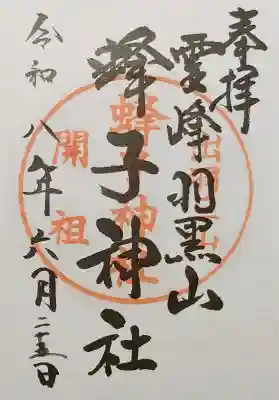 奉拝
霊峰羽黒山
蜂子神社
令和八年六月二十五日
開祖
蜂子神社